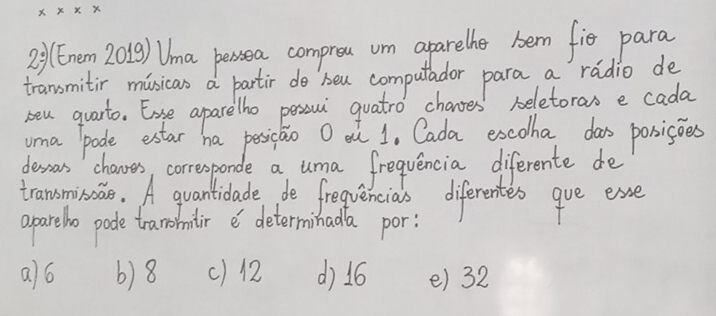 x x x x
2º)(Enem 2019) Uma pessoa comprou um aparelho sem fio para
transmitir músicas a partir do seu computador para a rádio de
seu quarto. Esse aparelho possui quatro chaves seletoras e cada
uma pode estar na posição 0 ou 1. Cada escolha das posições
dessas chaves corresponde a uma frequência diferente de
transmissão. A quantidade de frequências diferentes que esse
aparelho pode transmitir é determinada por:
a) 6 b) 8 c) 12 d) 16 e) 32